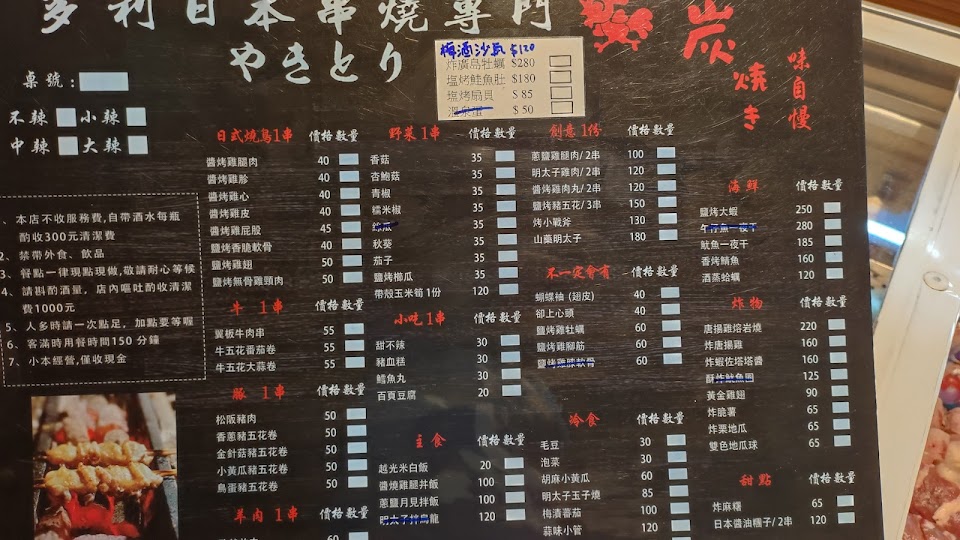 多利日本串燒專門
やきとり
炭燒き
味自慢
梅酒沙瓦 $120
炸廣島牡蠣 $280
塩烤鮭魚肚 $180
塩烤扇貝 $85
溫泉蛋 $50
桌號:
不辣 小辣
中辣 大辣
1、本店不收服務費,自帶酒水每瓶
酌收300元清潔費
2、禁帶外食、飲品
3、餐點一律現點現做,敬請耐心等候
4、請斟酌酒量,店內嘔吐酌收清潔
費1000元
5、人多時請一次點足,加點要等喔
6、客滿時用餐時間150分鐘
7、小本經營,僅收現金
日式燒鳥1串 價格 數量
醬烤雞腿肉 40
醬烤雞胗 40
鹽烤雞心 40
醬烤雞皮 40
醬烤雞屁股 45
鹽烤香脆軟骨 40
鹽烤雞翅 40
鹽烤無骨雞頸肉 50
牛 1串 價格 數量
翼板牛肉串 55
牛五花番茄卷 55
牛五花大蒜卷 55
豚 1串 價格 數量
松阪豬肉 50
香蔥豬五花卷 50
金針菇豬五花卷 50
小黃瓜豬五花卷 50
鳥蛋豬五花卷 50
羊肉 1串 價格 數量
60
野菜 1串 價格 數量
香菇 35
杏鮑菇 35
青椒 35
糯米椒 35
35
秋葵 35
茄子 35
鹽烤櫛瓜 35
帶殼玉米筍 1份 120
小吃 1串 價格 數量
甜不辣 30
豬血糕 30
鱈魚丸 30
百頁豆腐 20
主食 價格 數量
越光米白飯 20
醬燒雞腿丼飯 100
蔥鹽月見拌飯 100
明太子拌烏龍 120
創意 1份 價格 數量
蔥鹽雞腿肉/2串 100
明太子雞肉/2串 120
醬烤雞肉丸/2串 120
鹽烤豬五花/3串 150
烤小戰斧 130
山藥明太子 180
不一定會有 價格 數量
蝴蝶袖(翅皮) 40
卻上心頭 40
鹽烤雞牡蠣 60
鹽烤雞腳筋 60
鹽烤雞膝軟骨 60
冷食 價格 數量
毛豆 30
泡菜 30
胡麻小黃瓜 60
明太子玉子燒 85
梅漬蕃茄 100
蒜味小管 120
海鮮 價格 數量
鹽烤大蝦 250
午仔魚一夜干 280
魷魚一夜干 185
香烤鯖魚 160
酒蒸蛤蠣 120
炸物 價格 數量
唐揚雞熔岩燒 220
炸唐揚雞 160
炸蝦佐塔塔醬 160
酥炸魷魚圈 125
黃金雞翅 90
炸脆薯 65
炸栗地瓜 65
雙色地瓜球 65
甜點 價格 數量
炸麻糬 65
日本醬油糰子/2串 120